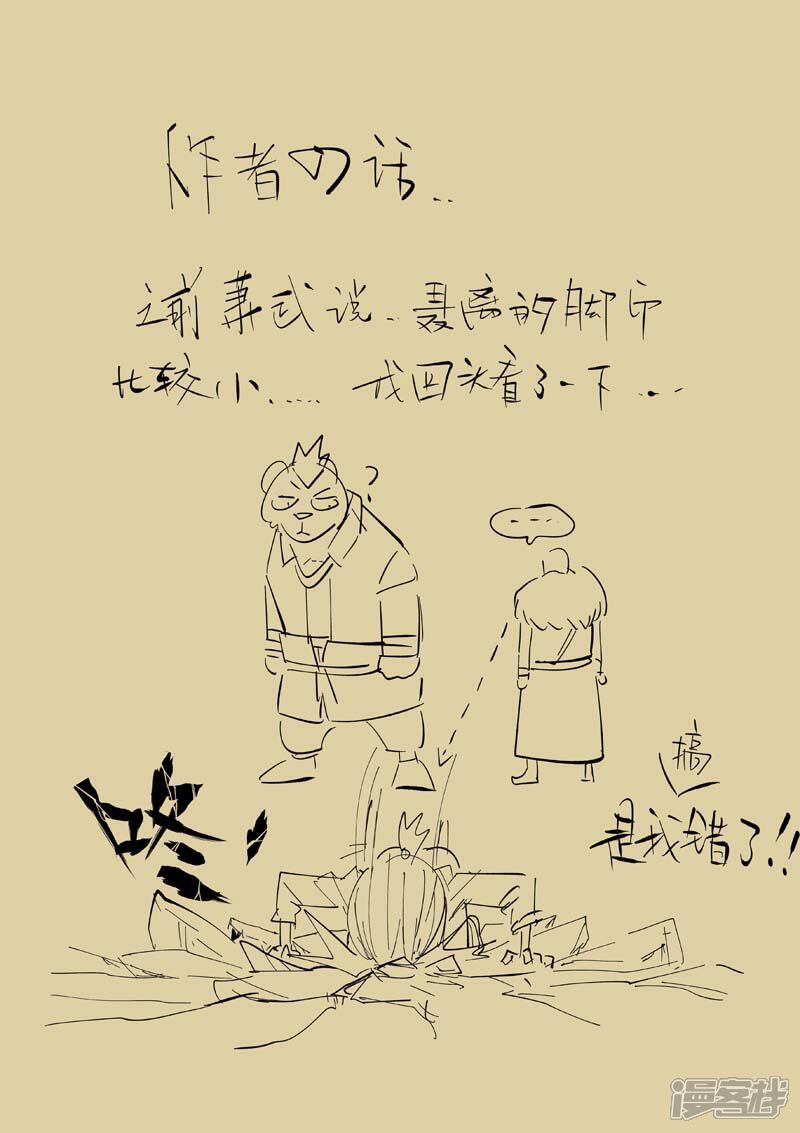 作者の话..
之前募武说..聂离的脚印
比较小...... 我回头看了一下....
?
....
搞
是我错了!!
咚!
漫客栈